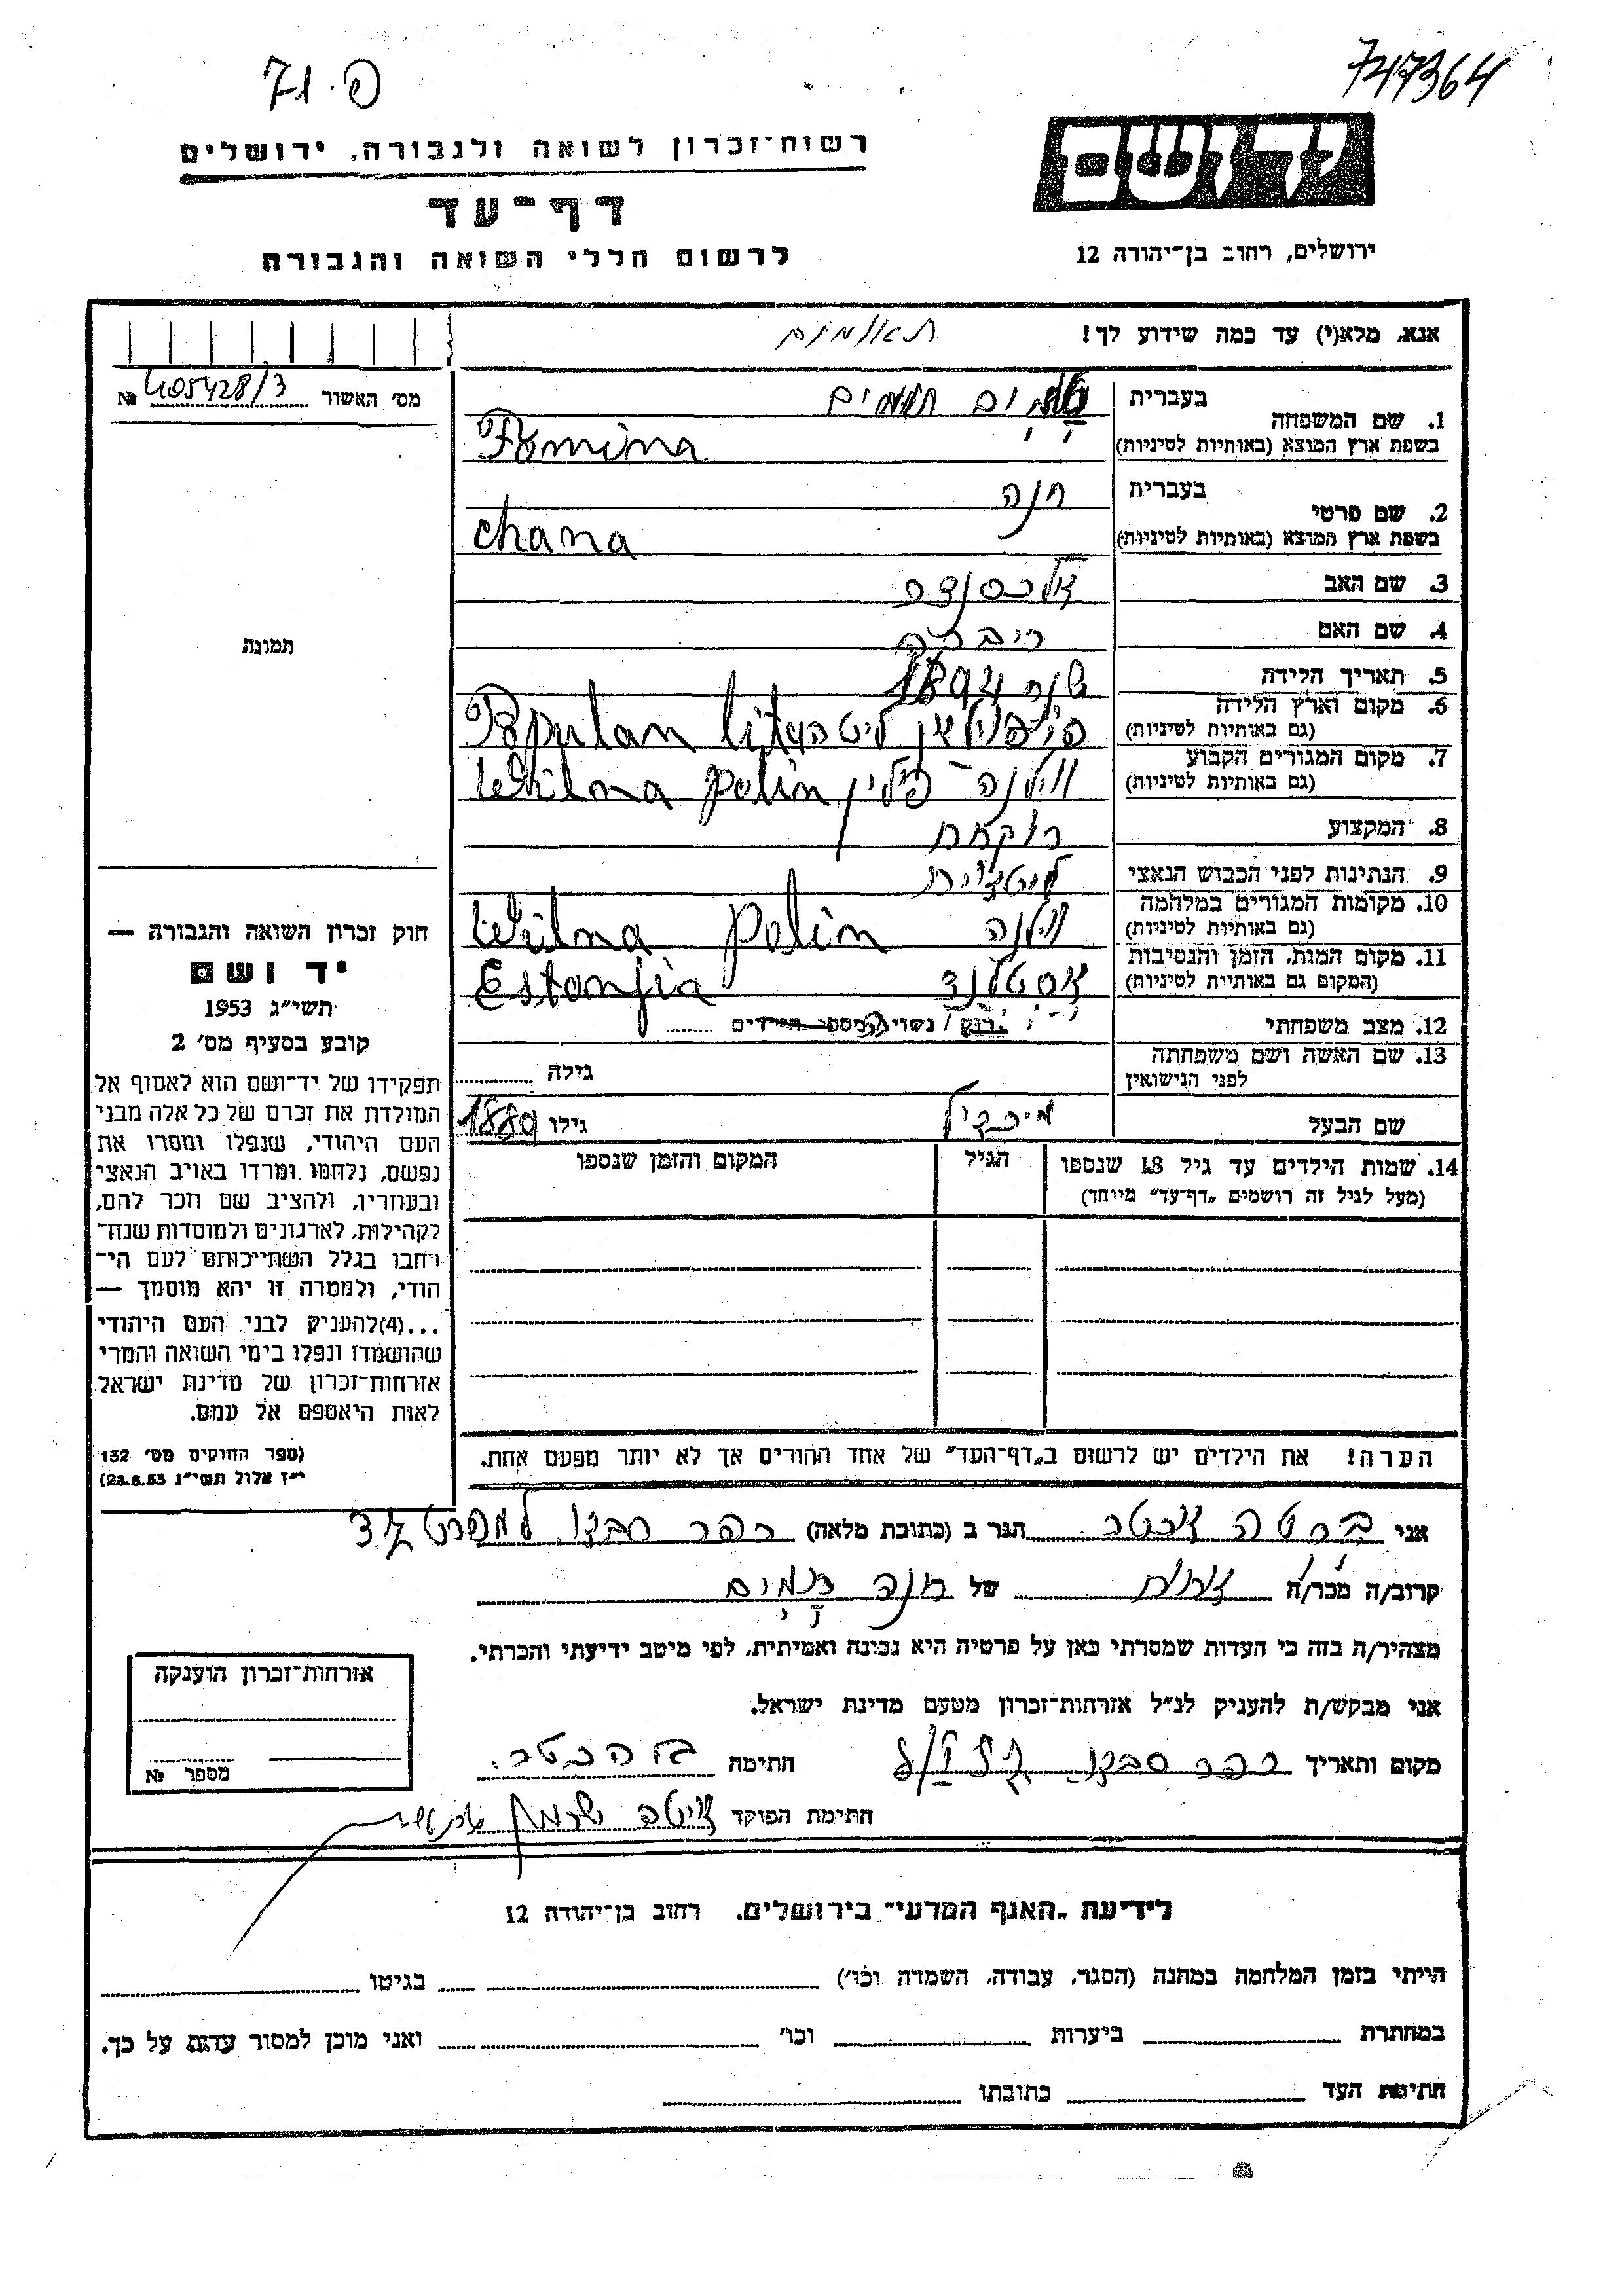 פ. 71
747364
רשות־זכרון לשואה ולגבורה, ירושלים
יד ושם
דף־עד
לרשום חללי השואה והגבורה
ירושלים, רחוב בן־יהודה 12
אנא, מלא(י) עד כמה שידוע לך!
תאומים
מס׳ האשור № 405428/3
1. שם המשפחה
בעברית תומים
בשפת ארץ המוצא (באותיות לטיניות) Tomima
2. שם פרטי
בעברית חנה
בשפת ארץ המוצא (באותיות לטיניות) chana
3. שם האב אלכסנדר
4. שם האם ריבה
תמונה
5. תאריך הלידה שנת 1894
6. מקום וארץ הלידה
(גם באותיות לטיניות) ליטה Populan lita
7. מקום המגורים הקבוע
(גם באותיות לטיניות) ווילנה פולין Wilna polin
8. המקצוע רוקחת
9. הנתינות לפני הכבוש הנאצי ליטאית
10. מקומות המגורים במלחמה
(גם באותיות לטיניות) ווילנה Wilna polin
11. מקום המות, הזמן והנסיבות
(המקום גם באותיות לטיניות) אסטלנד Estonjia
12. מצב משפחתי רוק / נשוי מספר הילדים
13. שם האשה ושם משפחתה
לפני הנישואין גילה
שם הבעל מיכאל גילו 1880
14. שמות הילדים עד גיל 18 שנספו
(מעל לגיל זה רושמים „דף־עד״ מיוחד)
הגיל
המקום והזמן שנספו
חוק זכרון השואה והגבורה —
יד ושם
תשי״ג 1953
קובע בסעיף מס׳ 2
תפקידו של יד־ושם הוא לאסוף אל
המולדת את זכרם של כל אלה מבני
העם היהודי, שנפלו ומסרו את
נפשם, נלחמו ומרדו באויב הנאצי
ובעוזריו, ולהציב שם וזכר להם,
לקהילות, לארגונים ולמוסדות שנח־
רחבו בגלל השתייכותם לעם הי־
הודי, ולמטרה זו יהא מוסמך —
...(4)להעניק לבני העם היהודי
שהושמדו ונפלו בימי השואה והמרי
אזרחות־זכרון של מדינת ישראל
לאות היאספם אל עמם.
(ספר החוקים מס׳ 132
י״ז אלול תשי״ג 28.8.53)
הערה! את הילדים יש לרשום ב„דף־העד״ של אחד ההורים אך לא יותר מפעם אחת.
אני ברטה הכטר הגר ב (כתובת מלאה) כפר סבא 37
קרוב/ה מכר/ה אחות של חנה תומים
מצהיר/ה בזה כי העדות שמסרתי כאן על פרטיה היא נכונה ואמיתית, לפי מיטב ידיעתי והכרתי.
אני מבקש/ת להעניק לנ״ל אזרחות־זכרון מטעם מדינת ישראל.
אזרחות־זכרון הוענקה
מספר №
מקום ותאריך כפר סבא חתימה ב. הכטר
חתימת הפוקד
לידיעת „האגף המדעי״ בירושלים, רחוב בן־יהודה 12
הייתי בזמן המלחמה במחנה (הסגר, עבודה, השמדה וכו׳) בגיטו
במחתרת ביערות וכו׳ ואני מוכן למסור עדות על כך.
חתימת העד כתובתו